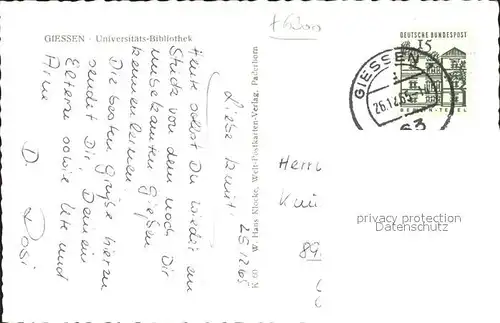 GIESSEN - Universitäts-Bibliothek
25.12.65
Heute sollst Du wieder ein
Stück von dem noch Dir
unbekannten Gießen
kennenlernen!
Die besten Grüße hierzu
sendet Dir, Deinen
Eltern sowie Ute und
D.
Rosi
K 60 W. Hans Klocke, Welt-Postkarten-Verlag, Paderborn
DEUTSCHE BUNDESPOST
15
BERLIN-TEGEL
GIESSEN
63
Herrn
privacy protection
Datenschutz